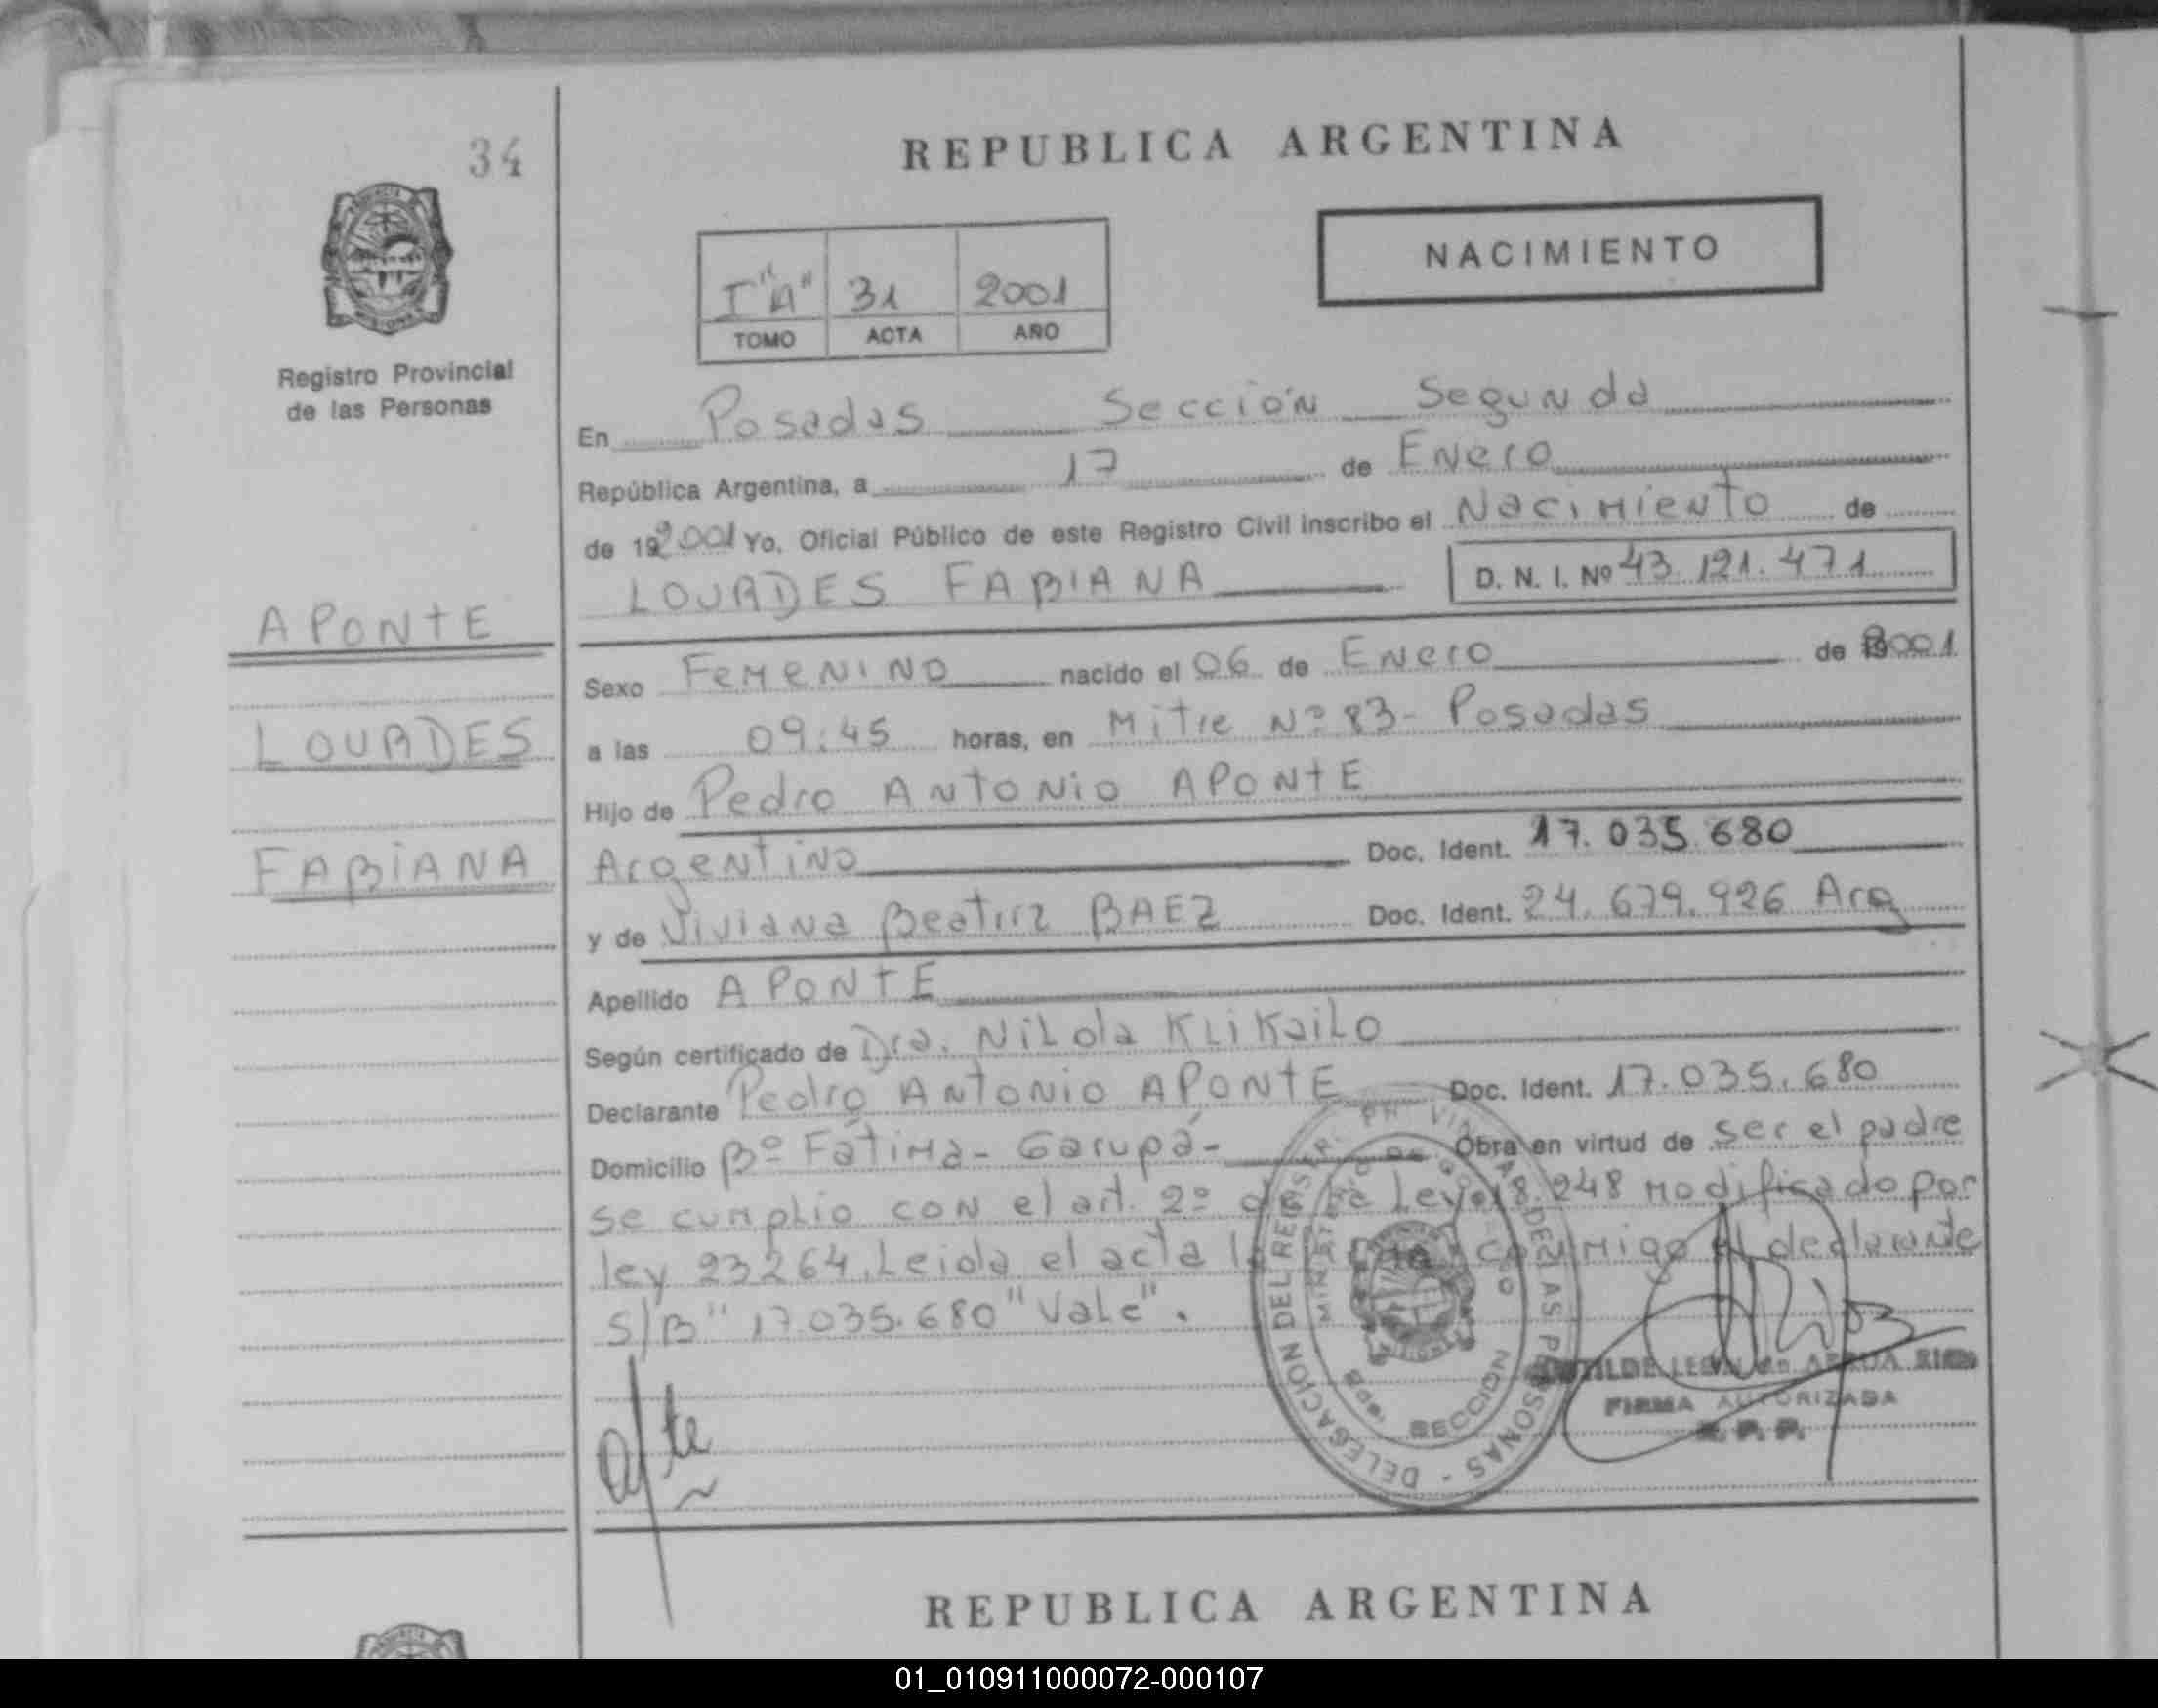 34
REPUBLICA ARGENTINA
NACIMIENTO
I "A" 31 2001
TOMO ACTA AÑO
Registro Provincial
de las Personas
En Posadas Sección Segunda
República Argentina, a 17 de Enero
de 192001 Yo, Oficial Público de este Registro Civil inscribo el Nacimiento de
LOURDES FABIANA D. N. I. Nº 43.121.471
APONTE
LOURDES
FABIANA
Sexo Femenino nacido el 06 de Enero de 2001
a las 09:45 horas, en Mitre Nº 83- Posadas
Hijo de Pedro Antonio APONTE
Argentino Doc. Ident. 17.035.680
y de Viviana Beatriz BAEZ Doc. Ident. 24.679.926 Arg
Apellido APONTE
Según certificado de Dra. Nilda Klikailo
Declarante Pedro Antonio APONTE Doc. Ident. 17.035.680
Domicilio Bº Fátima- Garupá- Obra en virtud de ser el padre
se cumplio con el art. 2º de la Ley 18.248 modificado por
ley 23264. Leida el acta la conmigo el declarante
S/B "17.035.680" Vale".
DELEGACION DEL REGIST. DE LAS PERSONAS
SECCION
FIRMA AUTORIZADA
R. P. P.
REPUBLICA ARGENTINA
01_010911000072-000107